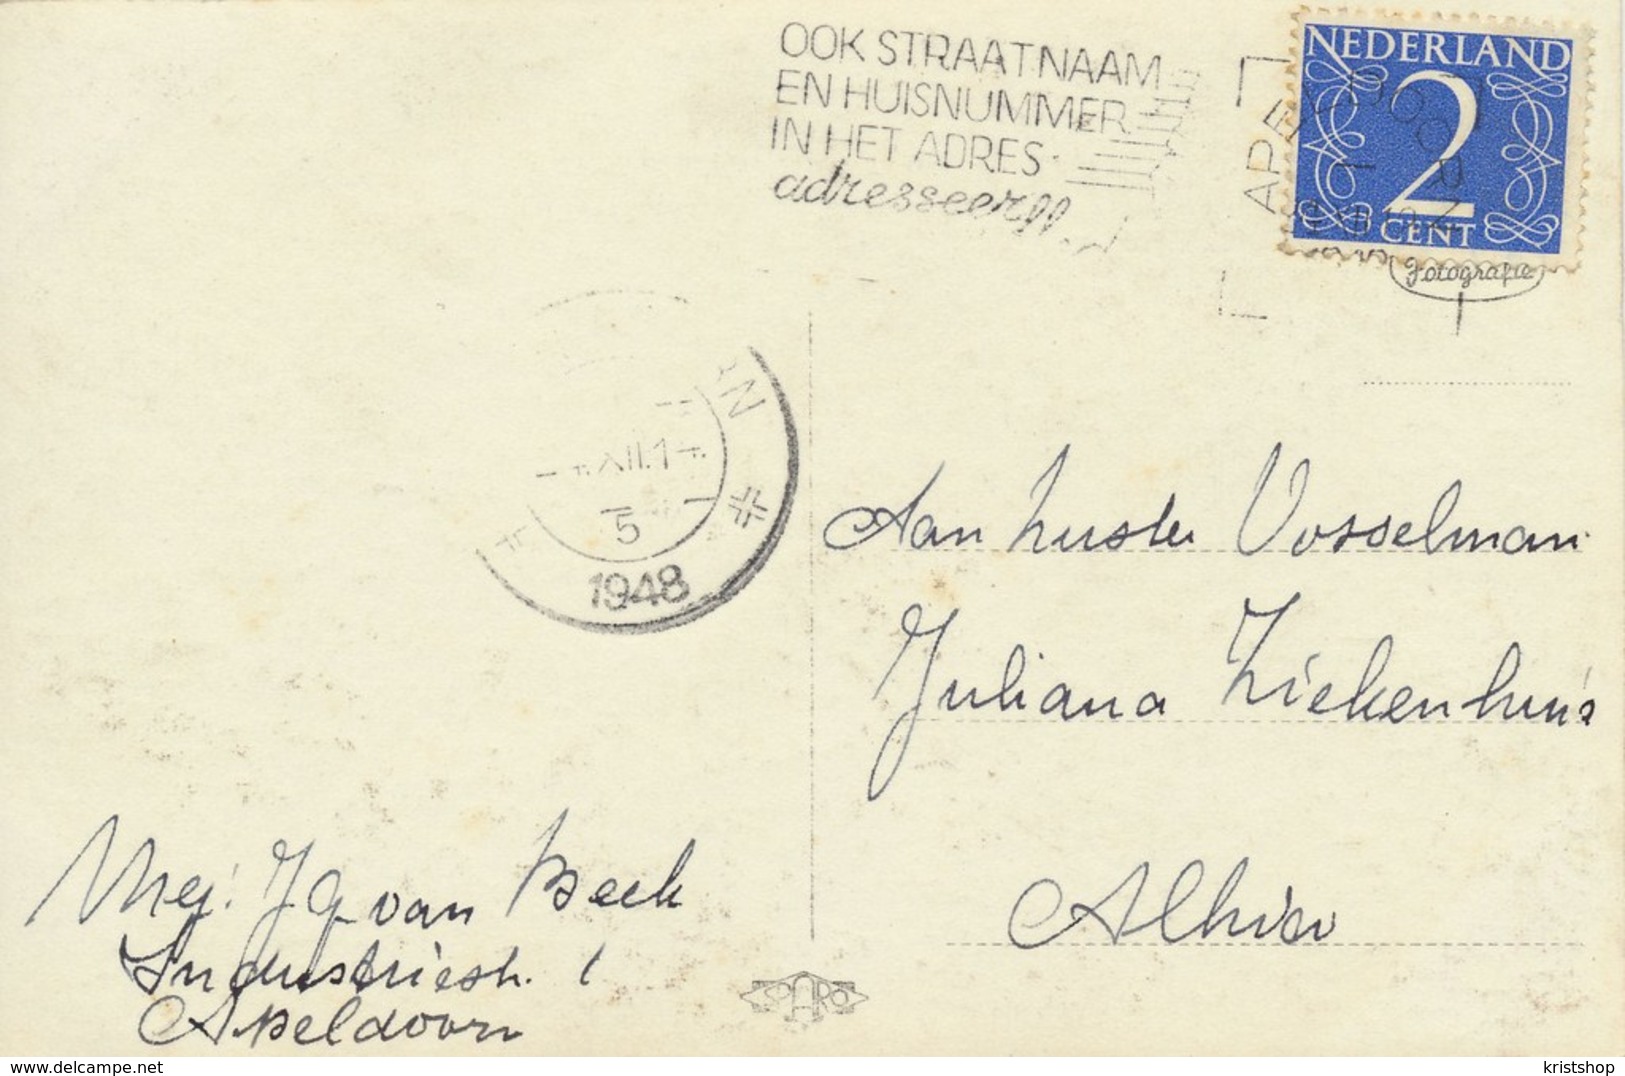 OOK STRAATNAAM
EN HUISNUMMER
IN HET ADRES
adresseer
NEDERLAND
2
CENT
APELDOORN
Fotografie
RN
XII.1
5
1948
Aan Zuster Vosselman
Juliana Ziekenhuis
Alhier
Mej. J G van Beek
Industriestr. 1
Apeldoorn
SPARO
delcampe.net
kristshop